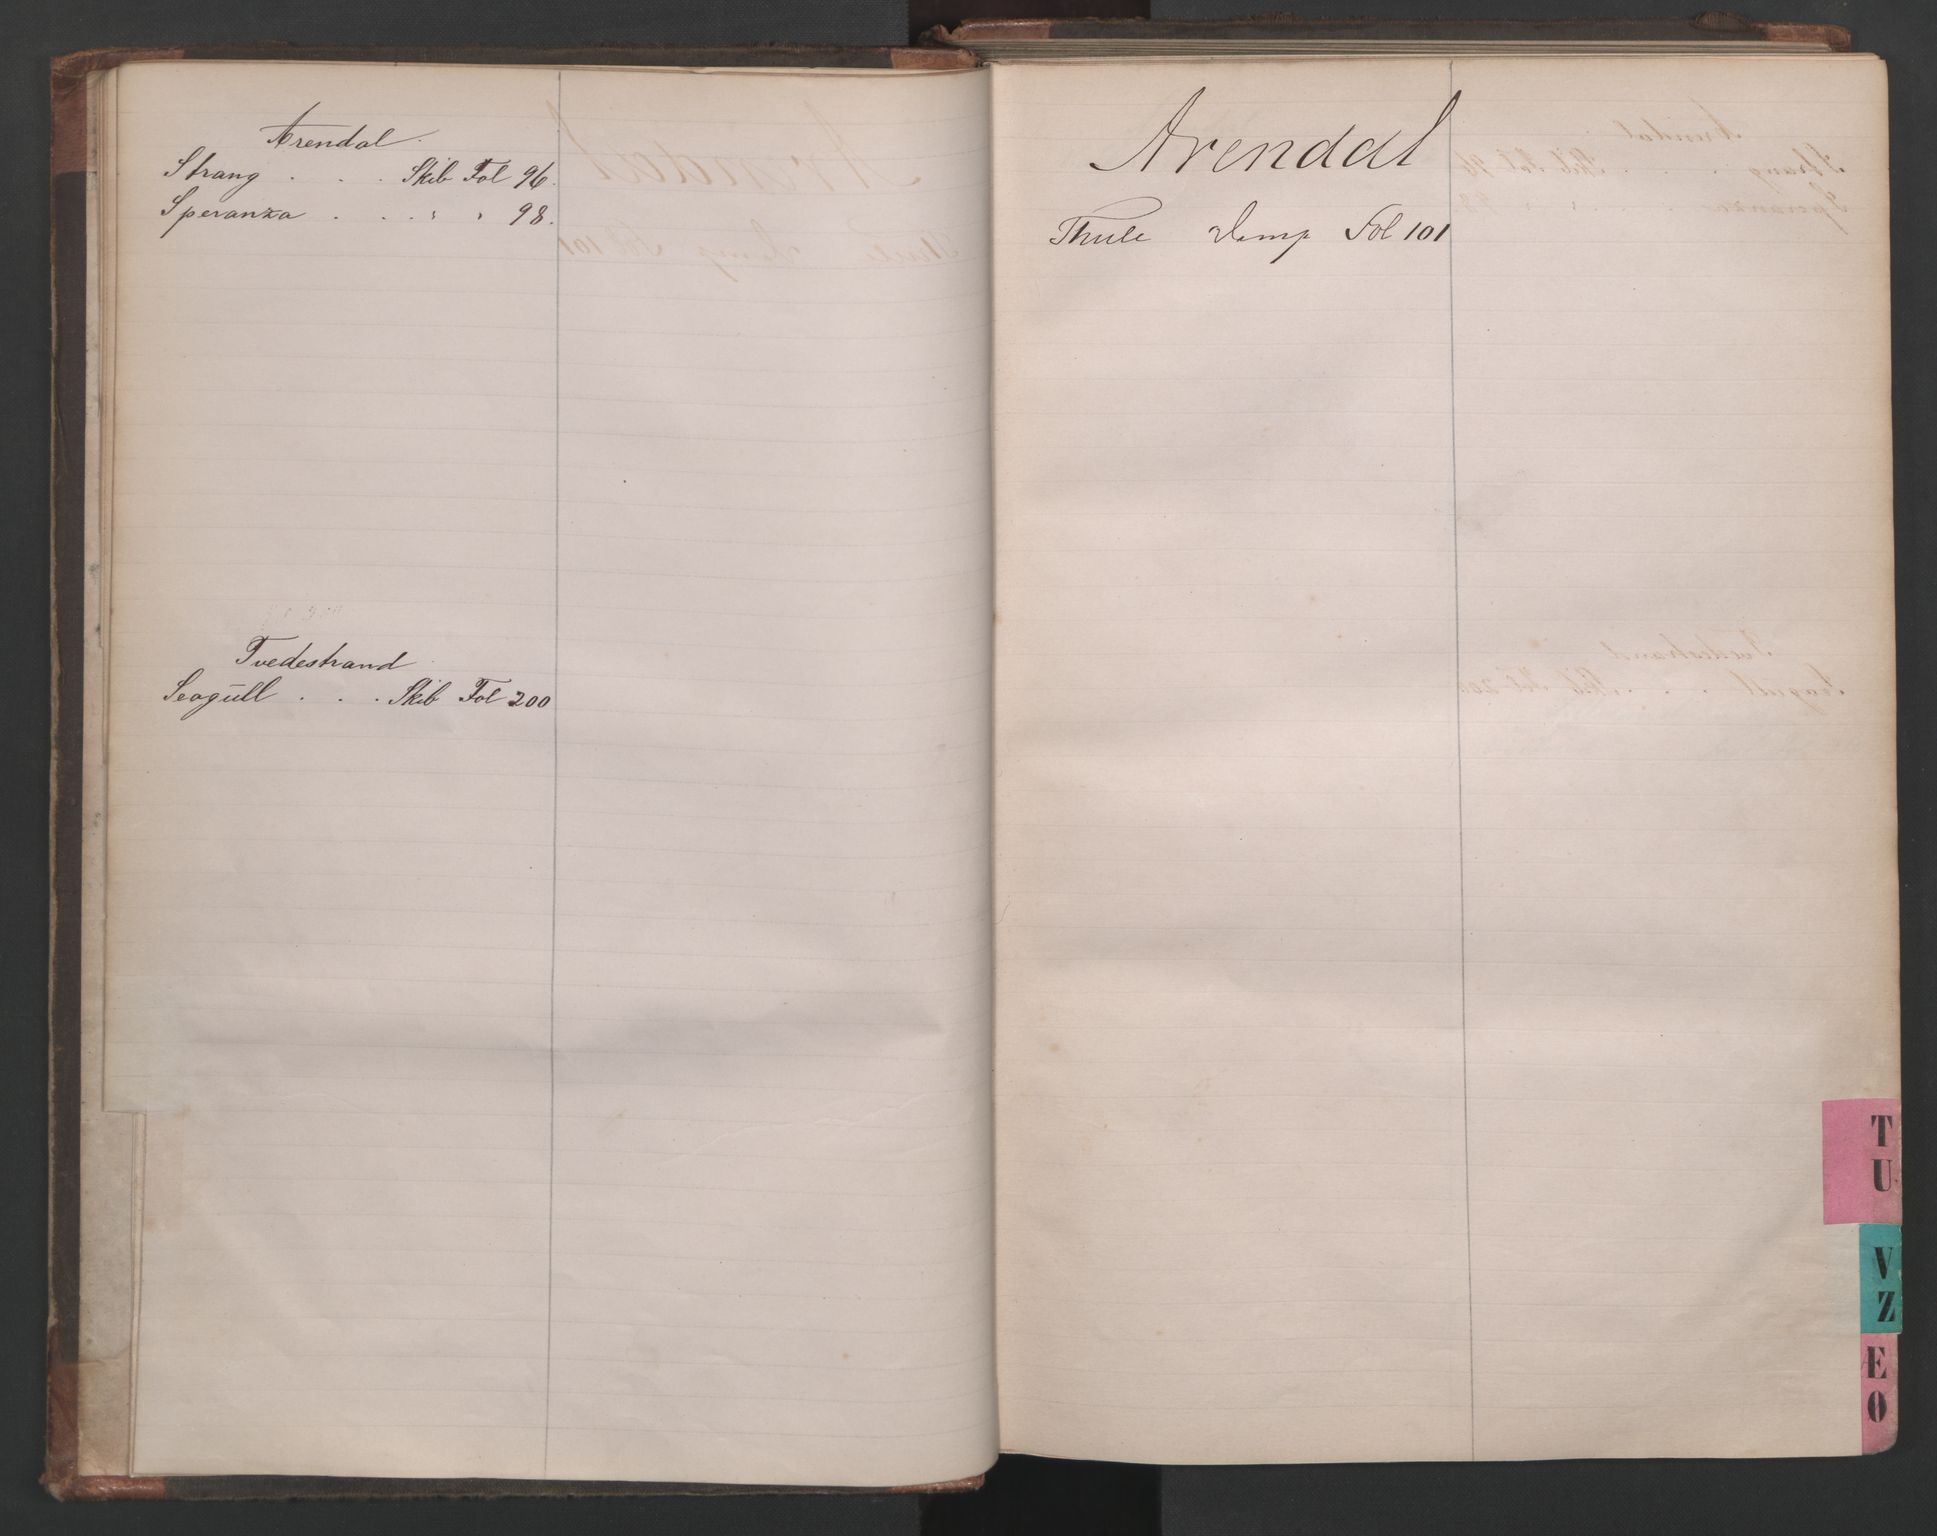 Arendal.
Strang . . . Skib Fol 96.
Speranza . . . " " 98.
Tvedestrand
Seagull . . . Skib Fol 200
Arendal
Thule Damp Fol 101
T
U
V
Z
Æ
Ø